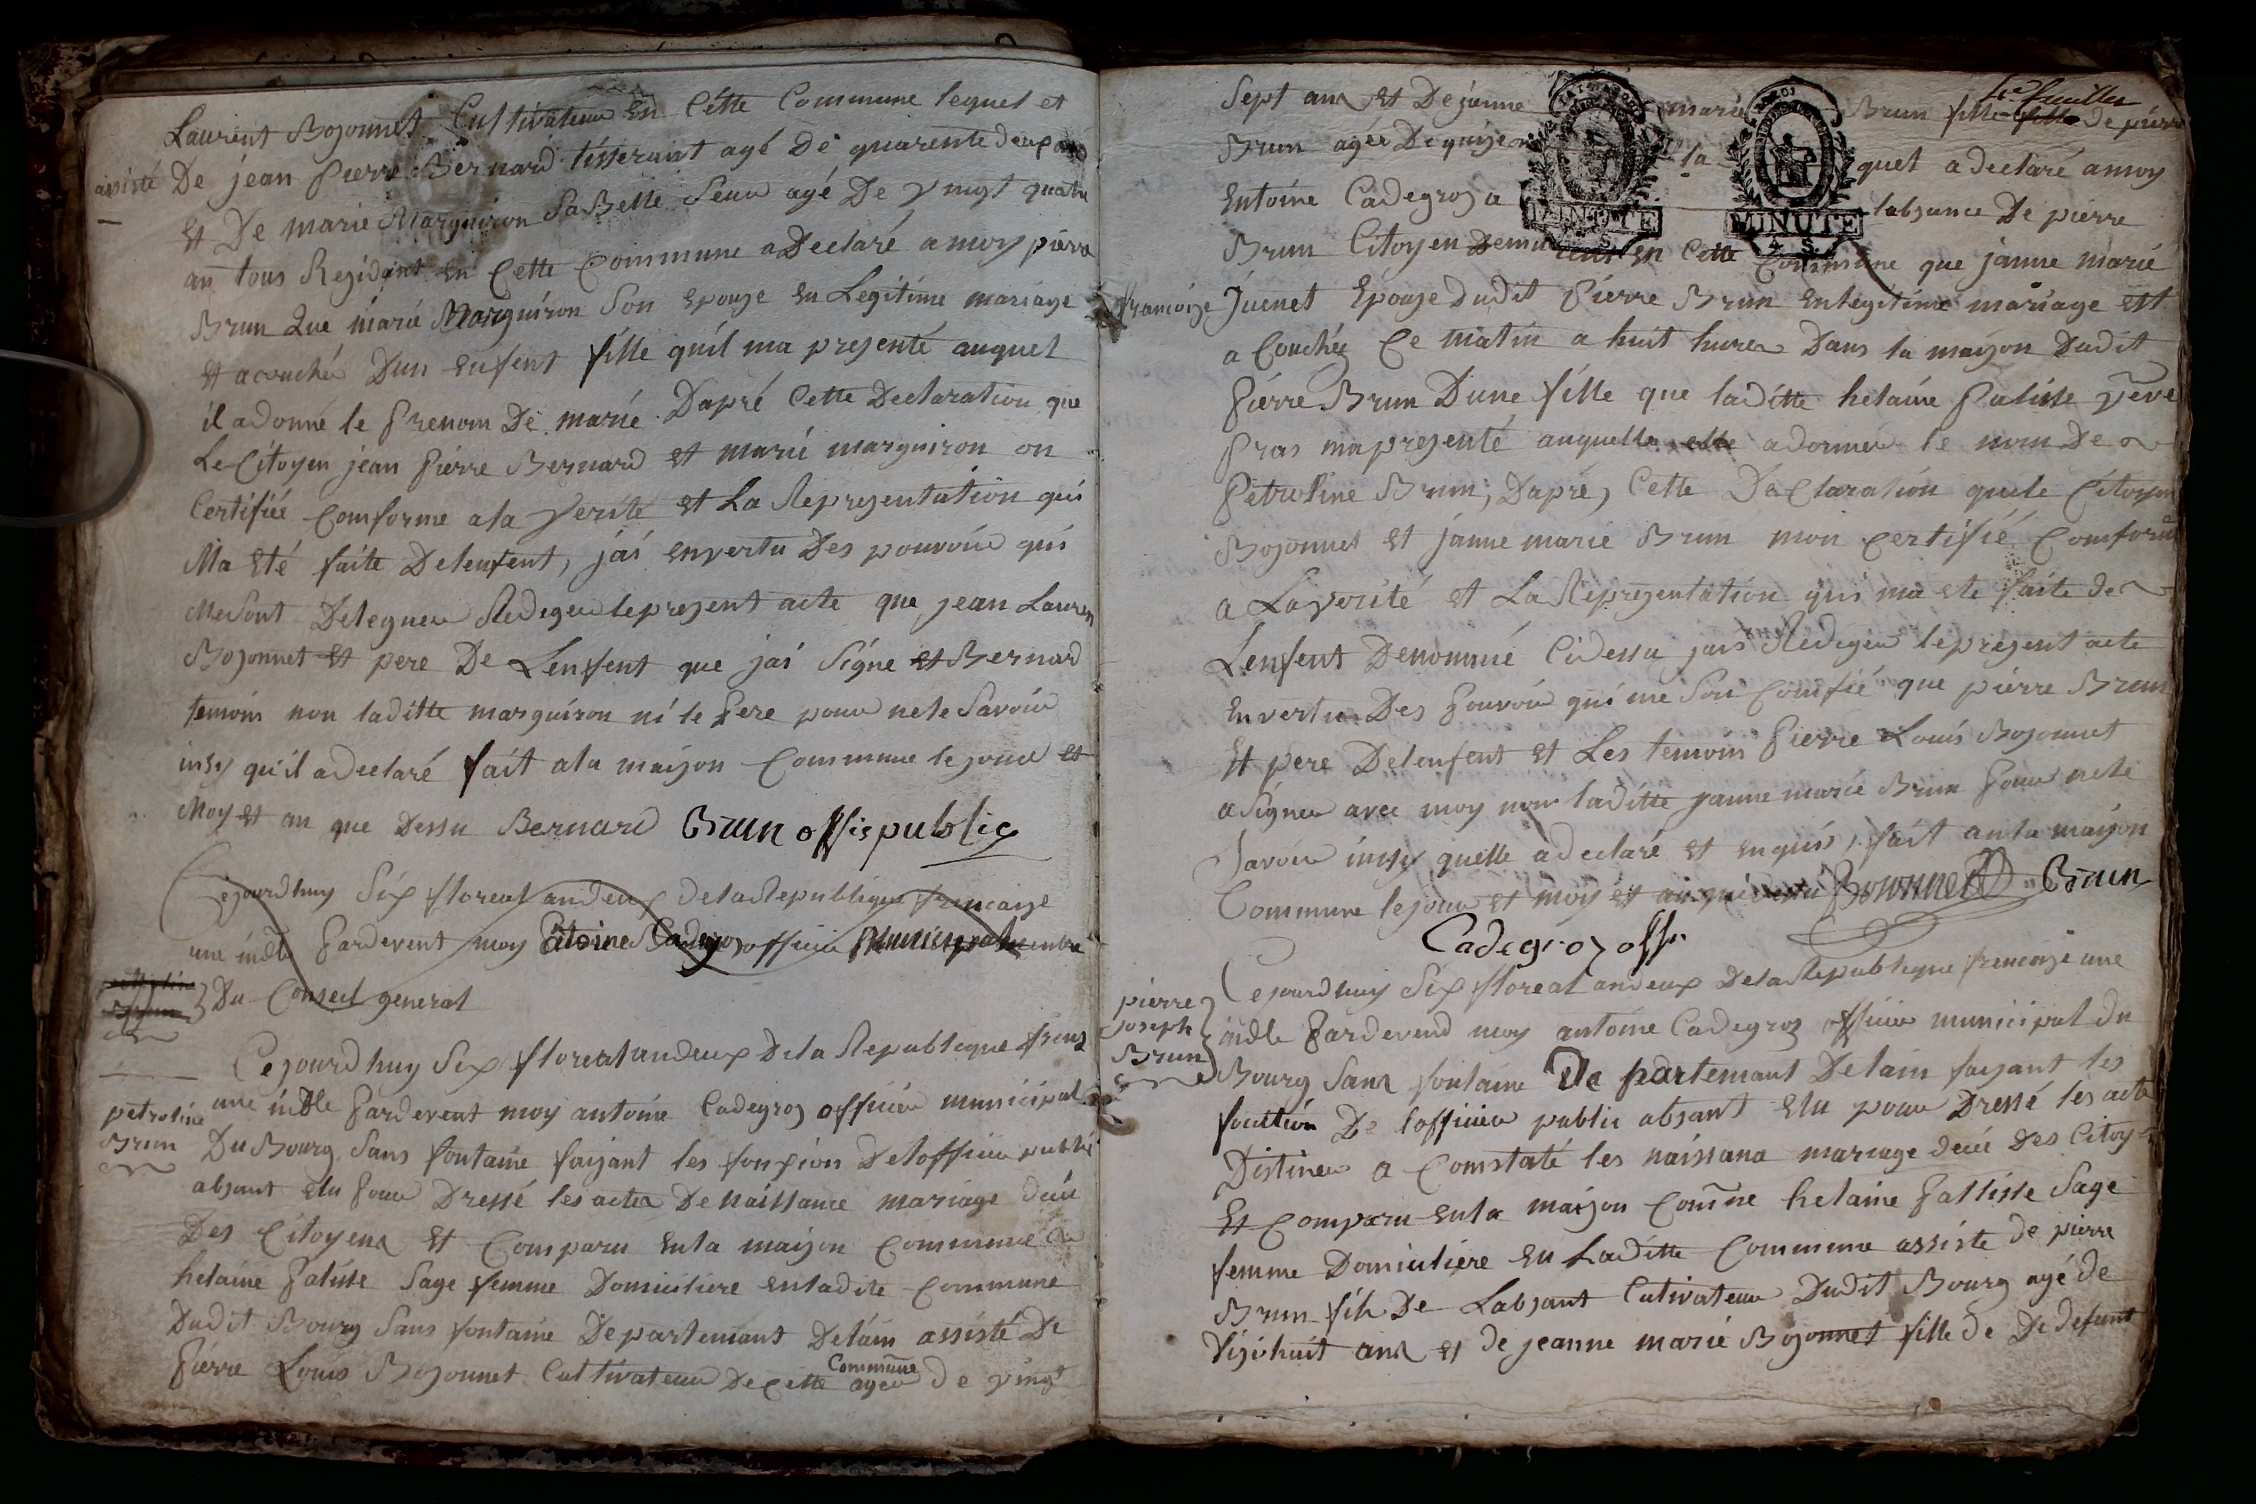 Laurent Bozonnet Cultivateur En Cétte Commune lequel et
assisté De jean Pierre Bernard tisserant agé De quarente deux ans
Et De marie Marguiron Sa Belle Seur agé De Vingt quatre
an tous Residant en Cette Commune a Declaré a moy pierre
Brun Que marie Marguiron Son Epouze En Legitime mariage
Et acouché Dun Enfent fille quil ma presenté auquel
il a donné le Prenom De marie Dapré Cette Declaration que
Le Citoyen jean Pierre Bernard Et marie marguiron on
Certifiée Comforme a la Verité Et La Representation qui
Ma Eté faite De lenfent, jai envertu Des pouvoir qui
Me Sont Deleguer Rediger le present acte que jean Lauren
Bozonnet Et pere De Lenfent que jai Signe Et Bernard
temoin non laditte marguiron ni le Pere pour ne le Savoir
insy qu'il a declaré fait a la maison Commune le jour et
Moy Et an que Dessu Bernard Brun offis public
Cejourdhuy Six floreal an deux De la Republique francaize
une indle Pardevent moy Entoine Cadegroz officier Municipal membre
Du Conseil general
Cejourdhuy Six floreal an deux De la Republique frenz
une indle Pardevent moy antoine Cadegroz officier municipal
petroline
Brun
Du Bourg Sans fontaine faizant les fonxion De lofficier public
absant elu Pour Dressé les actes De naissance mariage décé
Des Citoyens Et Comparu en la maizon Commune
helaine Paliste Sage femme Domiciliere en ladite Commune
Dudit Bourg Sans fontaine Departement Delain assisté De
Pierre Louis Bozonnet Cultivateur De Cette Commune agé de vingt
Sept ans Et De janne marie Brun fille de pierre
Brun agée De quinze la quel a declaré a moy
Entoine Cadegroz a labsance De pierre
Brun Citoyen Demu rent En Cette Commune que janne marie
francoize Juenet Epouze dudit Pierre Brun En legitime mariage Est
a Couchéz Ce matin a huit hures Dans la maizon Dudit
Pierre Brun Dune fille que laditte helaine Paliste veve
Pras ma presenté auquelle elle a donner le nom De
Petroline Brun, Dapré, Cette Declaration que le Citoyen
Bozonnet Et janne marie Brun mon Certifié Comforme
a La verité Et La Representation qui ma ete faite de
Lenfent Denommé Cidessu jais Rediger le present acte
En vertu Des Pouvoir qui me Son Comfié que pierre Brun
Et pere De lenfent Et Les temoin Pierre Louis Bozonnet
a Signer avec moy non laditte janne marie Brun Pour ne le
Savoir insy quelle a declaré et enquis, fait an la maizon
Commune le jour et moy et an que dessu Bozonnet Brun
Cadegroz offr
Cejourdhuy Six floreal an deux De la Republique frencaize une
pierre
joseph
Brun
indle Pardevend moy antoine Cadegroz officier municipal du
Bourg Sans fontaine De partemant Delain faizant les
fonction De lofficier public absant Elu pour Dressé les acte
Distiner a Comstaté les naissana mariage décé Des Citoy
Et Comparu en la maizon Comne helaine Palliste Sage
femme Domiciliere En Laditte Commune assiste de pierre
Brun fils De Labsant Cutivateur Dudit Bourg agé de
Vizihuit ans et de jeanne marie Bozonnet fille de De defunt